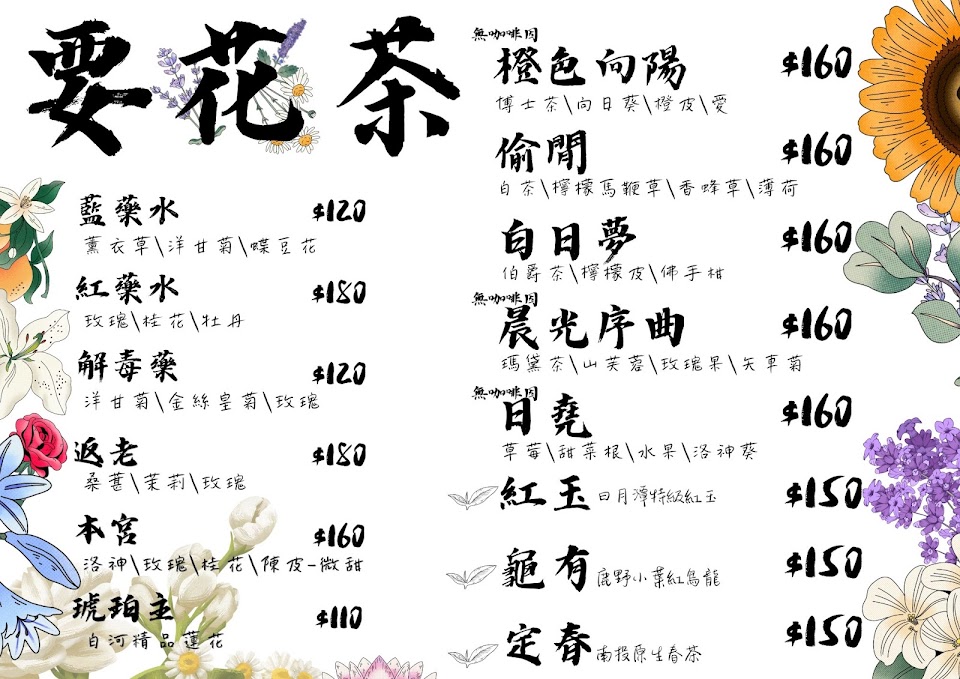 要花茶
藍藥水 $120
薰衣草\洋甘菊\蝶豆花
紅藥水 $180
玫瑰\桂花\牡丹
解毒藥 $120
洋甘菊\金絲皇菊\玫瑰
返老 $180
桑葚\茉莉\玫瑰
本宮 $160
洛神\玫瑰\桂花\陳皮-微甜
琥珀主 $110
白河精品蓮花
無咖啡因
橙色向陽 $160
博士茶\向日葵\橙皮\愛
偷閒 $160
白茶\檸檬馬鞭草\香蜂草\薄荷
白日夢 $160
伯爵茶\檸檬皮\佛手柑
無咖啡因
晨光序曲 $160
瑪黛茶\山芙蓉\玫瑰果\矢車菊
無咖啡因
日堯 $160
草莓\甜菜根\水果\洛神葵
紅玉 日月潭特級紅玉 $150
龜有 鹿野小葉紅烏龍 $150
定春 南投原生春茶 $150